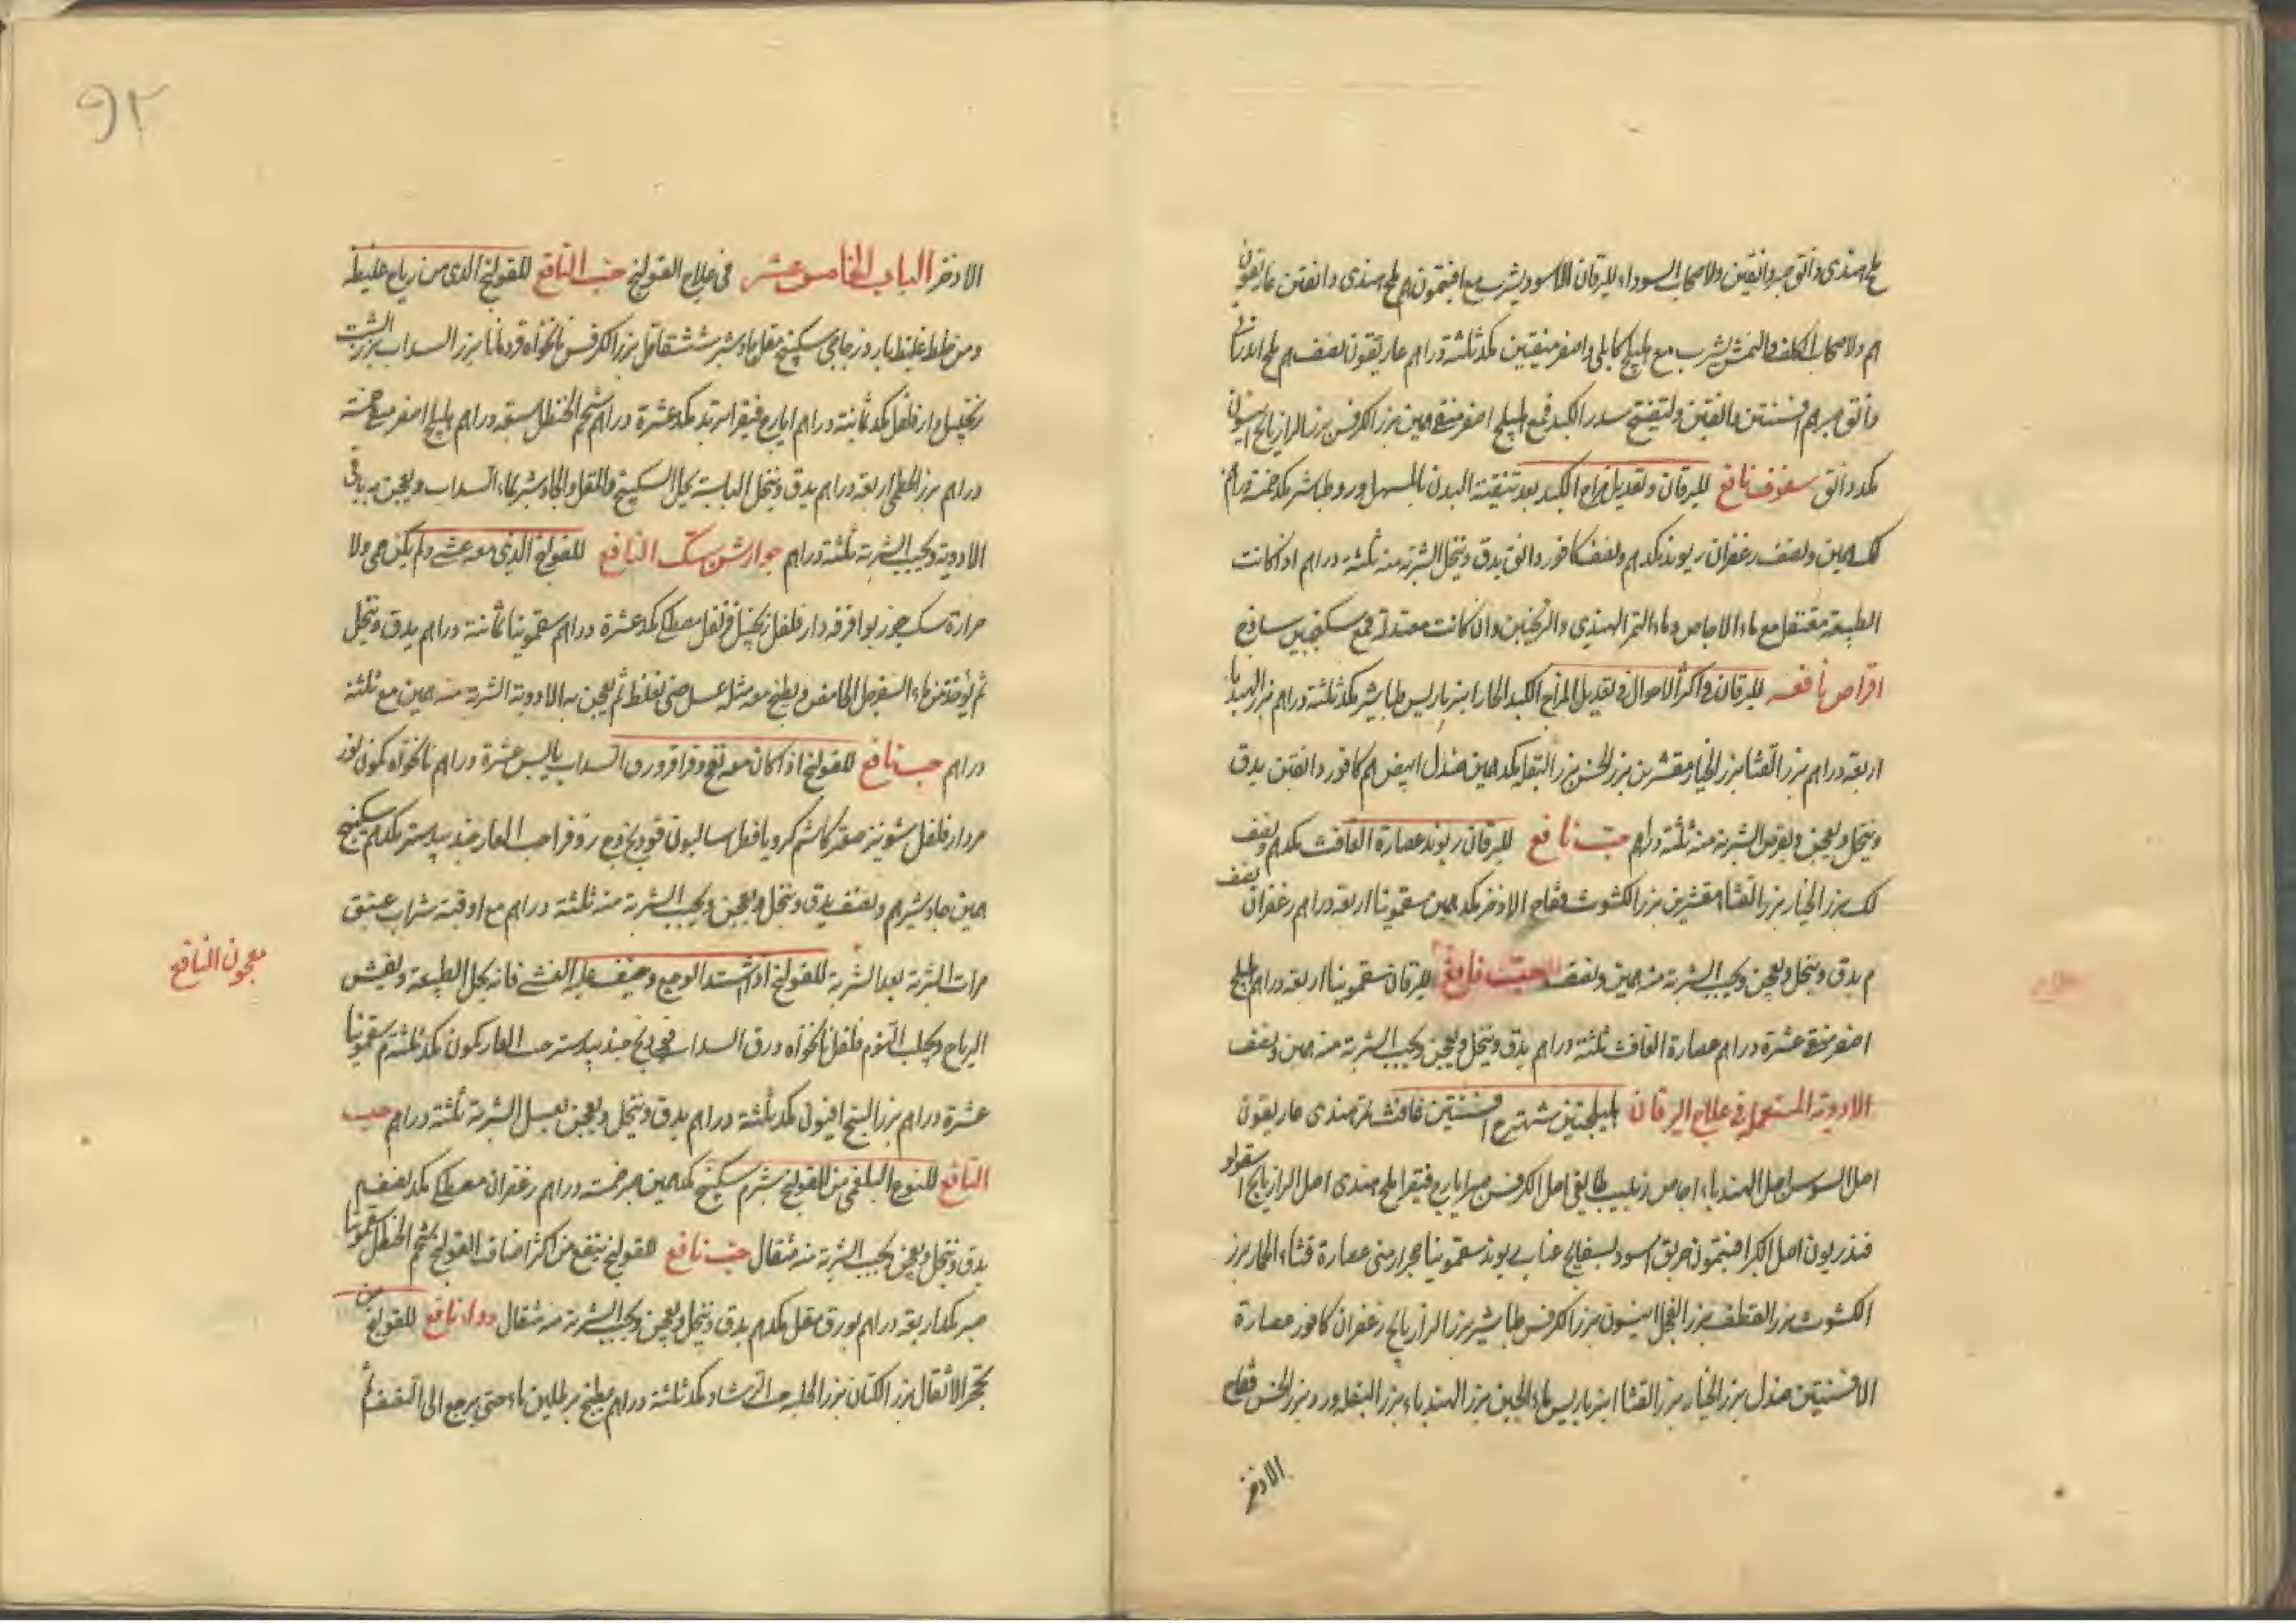 ملح هندى دانق صبر دانقين ولاصحاب السوداء لليرقان الاسود يشرب مع افيتمون م ملح هندى دانقين غاريقون
م ولاصحاب الكلف والنمش يشرب مع هليلج كابلى واصفر منقيين مكد ثلثة دراهم غاريقون نصف م ملح
دانق صبر م افسنتين دانقين ولتفتح سدد الكبد فمع هليلج اصفر منقى همين بزر الكرفس بزر الرازيانج انيسون
مكد دانق سفوف نافع لليرقان وتعديل مزاج الكبد بعد تنقية البدن بالمسهل ورد طباشير مكد خمسة دراهم
لك همين ونصف زعفران ريوند مكدهم ونصف كافور دانق يدق وينخل الشربة منه ثلثة دراهم اذ اكانت
الطبيعة معتقل مع ماء الاجاص وماء التمر الهندى والترنجبين وان كانت معتدلة فمع سكنجبين ساذج
اقراص نافعه لليرقان فى اكثر الاحوال وتعديل المزاج الكبد الحار انبرباريس طباشير مكد ثلثة دراهم بزر الهندبا
اربعة دراهم بزر القثا بزر الخيار مقشرين بزر الخس بزر البقله مكد همين صندل ابيض هم كافور دانقين يدق
وينخل ويعجن ويقرص الشربة منه ثلثة دراهم حب نافع لليرقان ريوند عصارة الغافث مكدهم ونصف
لك بزر الخيار بزر القثا مقشرين بزر الكشوث فقاح الاذخر مكد همين سقمونيا اربعة دراهم زعفران نصف
م يدق وينخل ويعجن ويحبب الشربة منه همين ونصف حب نافع لليرقان سقمونيا اربعة دراهم هليلج
اصفر منقى عشرة دراهم عصارة الغافث ثلثة دراهم يدق وينخل ويعجن ويحبب الشربة منه همين ونصف
الادوية المستعمل فى علاج اليرقان هليلجتين شهترج افسنتين غافث تمر هندى غاريقون
اصل السوس اصل الهندباء اجاص زبيب طايفى اصل الكرفس صبر ايارج فيقرا ملح هندى اصل الرازيانج
قنذريون اصل الكبر افيتمون خربق اسود بسفايج عناب ريوند سقمونيا حجر ارمنى عصارة قثاء الحمار بزر
الكشوث بزر القطف بزر الفجل انيسون بزر الكرفس طباشير بزر الرازيانج زعفران كافور عصارة
الافسنتين صندل بزر الخيار بزر القثا انبرباريس ماء الجبن بزر الهندباء بزر البقله ورد بزر الخس فقاح
الاذخر
٩٢
الاذخر الباب الخامس عشر فى علاج القولنج حب النافع للقولنج الذى من رياح غليظه
ومن خلط غليظ بارد زجاجى سكبينج مقل جاوشير ششقاقل بزر الكرفس نانخواه قردمانا بزر السداب بزر الشبت
زنجبيل دار فلفل مكد ثمانية دراهم ايارج فيقرا تربد مكد عشرة دراهم شحم الحنظل سبعة دراهم هليلج اصفر منقى خمسة
دراهم بزر الخطمى اربعة دراهم يدق وينخل اليابسة يحل السكبينج والمقل والجاوشير بماء السداب ويعجن به باقى
الادوية ويحبب الشربة ثلثة دراهم جوارشن سك النافع للقولنج الذى معه غشى ولم يكن حمى ولا
حرارة سك جوز بوا قرفه دار فلفل زنجبيل قرنفل مصطكى مكد عشرة دراهم سقمونيا ثمانية دراهم يدق وينخل
ثم يؤخذ من ماء السفرجل الحامض ويطبخ معه مثله عسل حتى يغلظ ثم يعجن به الادوية الشربة منه همين مع ثلثة
دراهم حب نافع للقولنج اذا كان معه نفخ وقراقر ورق السداب يابس عشرة دراهم نانخواه كمون
مر دار فلفل شونيز صعتر كاشم كرويا فطراساليون فوذنج وج زوفرا حب الغار جندبيدستر مكدهم سكبينج
همين جاوشير هم ونصف يدق وينخل ويعجن ويحبب الشربة منه ثلثة دراهم مع اوقية شراب عتيق
مرات الشربة بعد الشربة للقولنج اذا اشتد الوجع وخيف عليه الغشى فانه يحل الطبيعة ويفش
معجون النافع
الرياح ويجلب النوم فلفل نانخواه ورق السداب فوذنج جندبيدستر حب الغار كمون مكد ثلثة م سقمونيا
عشرة دراهم بزر البنج افيون مكد ثلثة دراهم يدق وينخل ويعجن بعسل الشربة ثلثة دراهم حب
النافع للنوع البلغمى من القولنج شبرم سكبينج مكد همين صبر خمسة دراهم زعفران مصطكى مكد نصف م
يدق وينخل ويعجن يحبب الشربة منه مثقال حب نافع للقولنج ينفع من اكثر اصناف القولنج شحم الحنظل سقمونيا
صبر مكد اربعة دراهم بورق مقل مكدهم يدق وينخل ويعجن ويحبب الشربة منه مثقال دواء نافع للقولنج من
تحجر الاثقال بزر الكتان بزر الحلبه حب الرشاد مكد ثلثة دراهم يطبخ برطلين ماء حتى يرجع الى النصف ثم